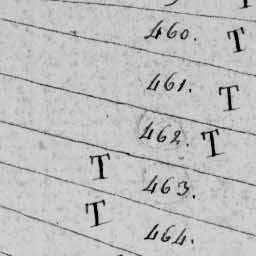 460. T
461. T
462. T
T 463.
T 464.